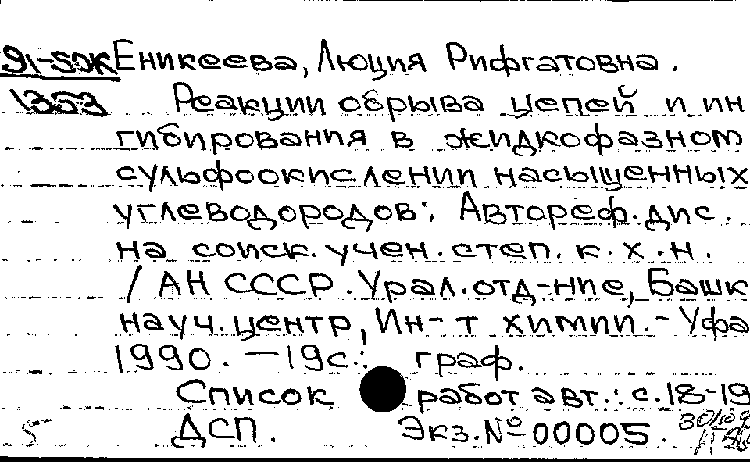 91-5ОК Еникеева, Люция Рифгатовна.
1353 Реакции обрыва цепей и ин
гибирования в жидкофазном
сульфоокислении насыщенных
углеводородов: Автореф. дис.
на соиск. учен. степ. к. х. н.
/ АН СССР. Урал. отд-ние, Башк
науч. центр, Ин-т химии. - Уфа
1990. - 19с.: граф.
Список работ авт.: с. 18-19
5 ДСП. Экз. № 00005.